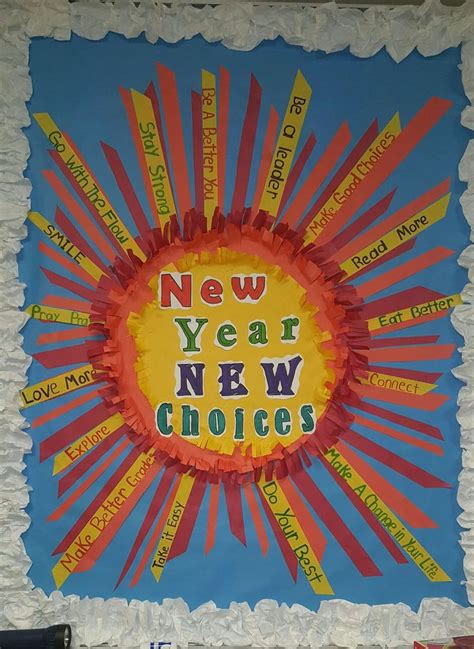 New
Year
NEW
Choices
Be A Better You
Be a leader
Make Good Choices
Read More
Eat Better
Connect
Make A Change in Your Life
Do Your Best
Take it Easy
Make Better Grades
Explore
Love More
Pray
SMILE
Go With The Flow
Stay Strong